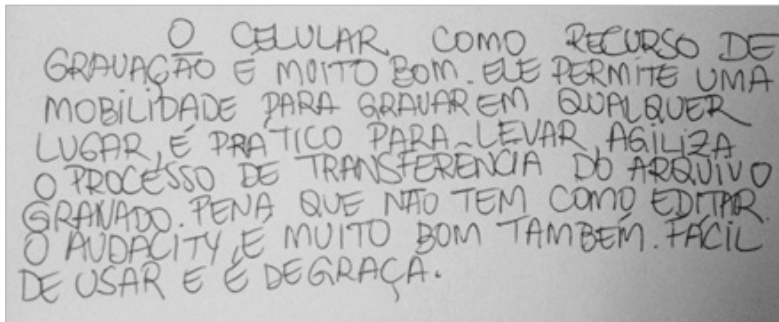 O CELULAR, COMO RECURSO DE
GRAVAÇÃO É MUITO BOM. ELE PERMITE UMA
MOBILIDADE PARA GRAVAR EM QUALQUER
LUGAR, É PRATICO PARA LEVAR, AGILIZA
O PROCESSO DE TRANSFERÊNCIA DO ARQUIVO
GRAVADO. PENA QUE NÃO TEM COMO EDITAR.
O AUDACITY, É MUITO BOM TAMBÉM. FÁCIL
DE USAR E É DE GRAÇA.